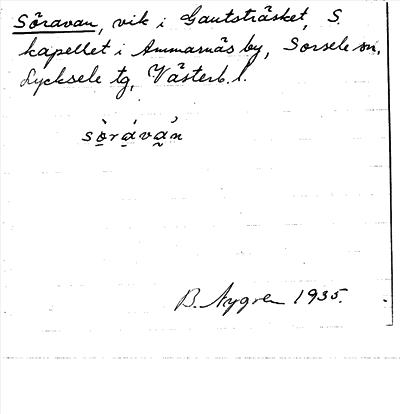 Söravan, vik i Gautsträsket, S.
kapellet i Ammarnäs by, Sorsele sn,
Lycksele tg, Västerb. l.
sò̱rá̱và̰n
B. Nygren 1935.